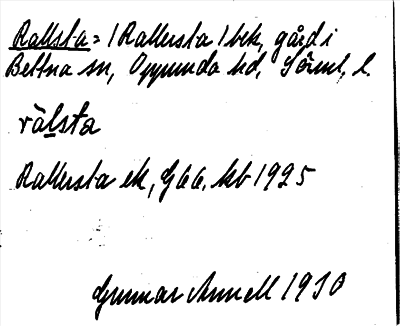 Rallsta = / Rallersta / bek, gård i
Bettna sn, Oppunda hd, Söreml, l.
rälsta
Rallersta ek, G66, kb 1925
Gunnar Annell 1930